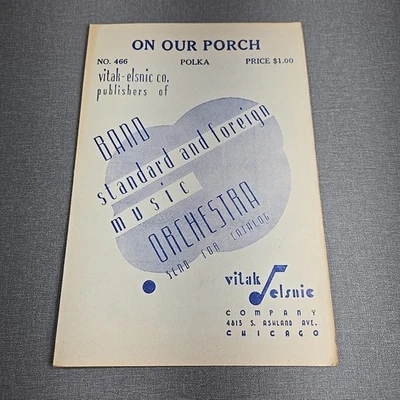 ON OUR PORCH
NO. 466 POLKA PRICE $1.00
vitak-elsnic co.
publishers of
BAND
standard and foreign
music
ORCHESTRA
SEND FOR CATALOG
vitak
elsnic
COMPANY
4815 S. ASHLAND AVE.
CHICAGO